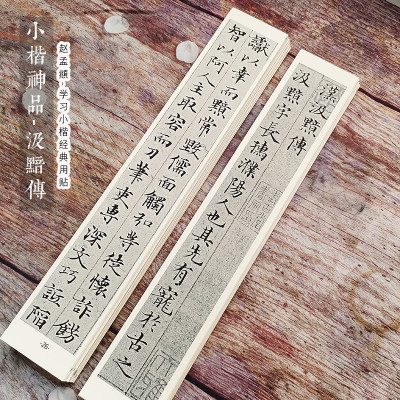 漢汲黯傳
汲黯字長孺濮陽人也其先有寵於古之
讞以幸而黯常毀儒面觸弘等徒懷詐飾
智以阿人主取容而刀筆吏專深文巧詆陷
-26-
小楷神品·汲黯傳
赵孟頫·学习小楷经典用贴